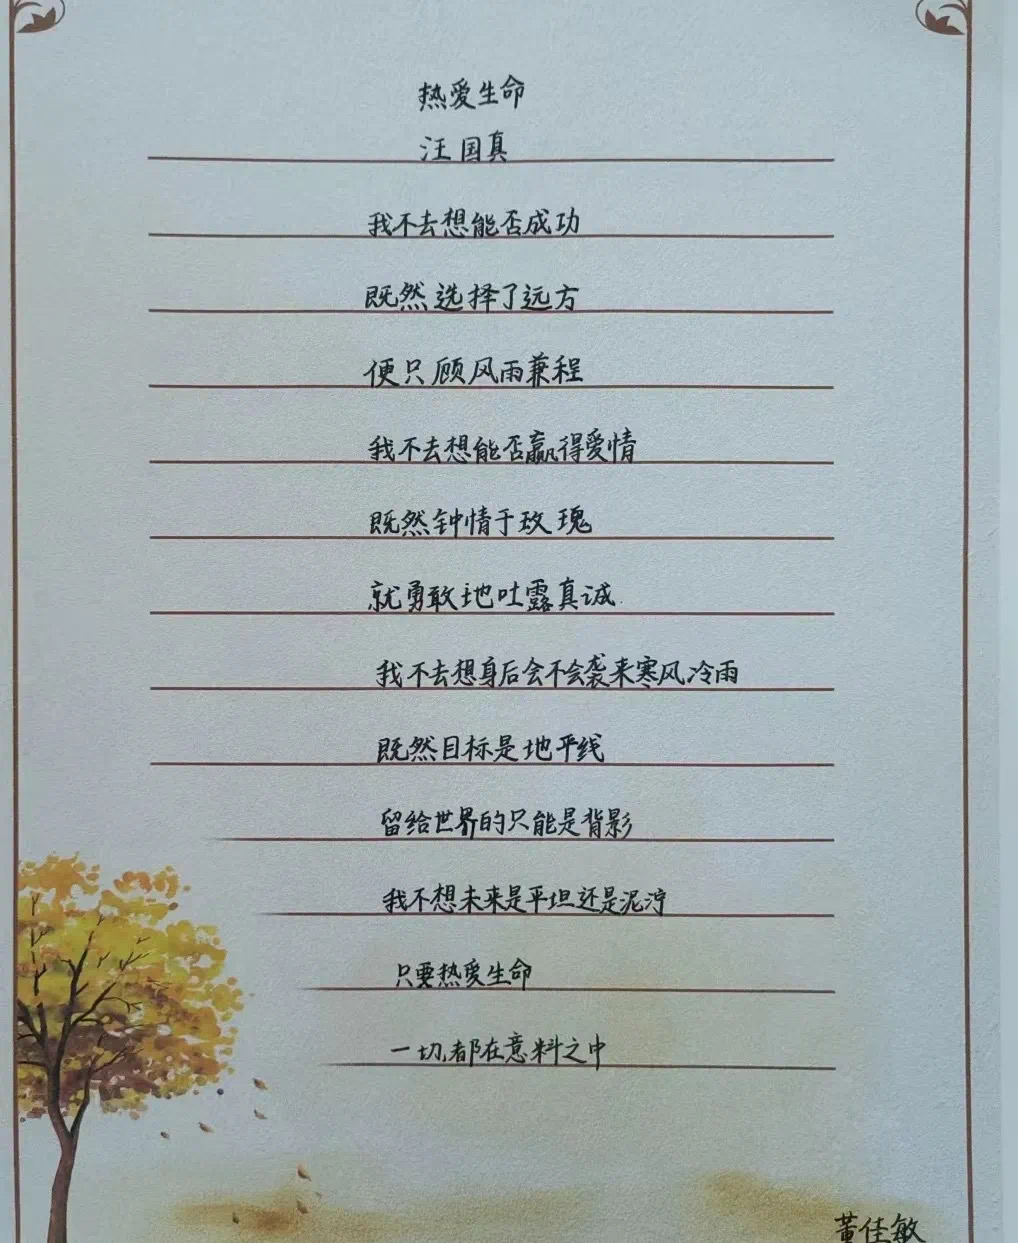 热爱生命
汪国真
我不去想能否成功
既然选择了远方
便只顾风雨兼程
我不去想能否赢得爱情
既然钟情于玫瑰
就勇敢地吐露真诚
我不去想身后会不会袭来寒风冷雨
既然目标是地平线
留给世界的只能是背影
我不想未来是平坦还是泥泞
只要热爱生命
一切都在意料之中
董佳敏